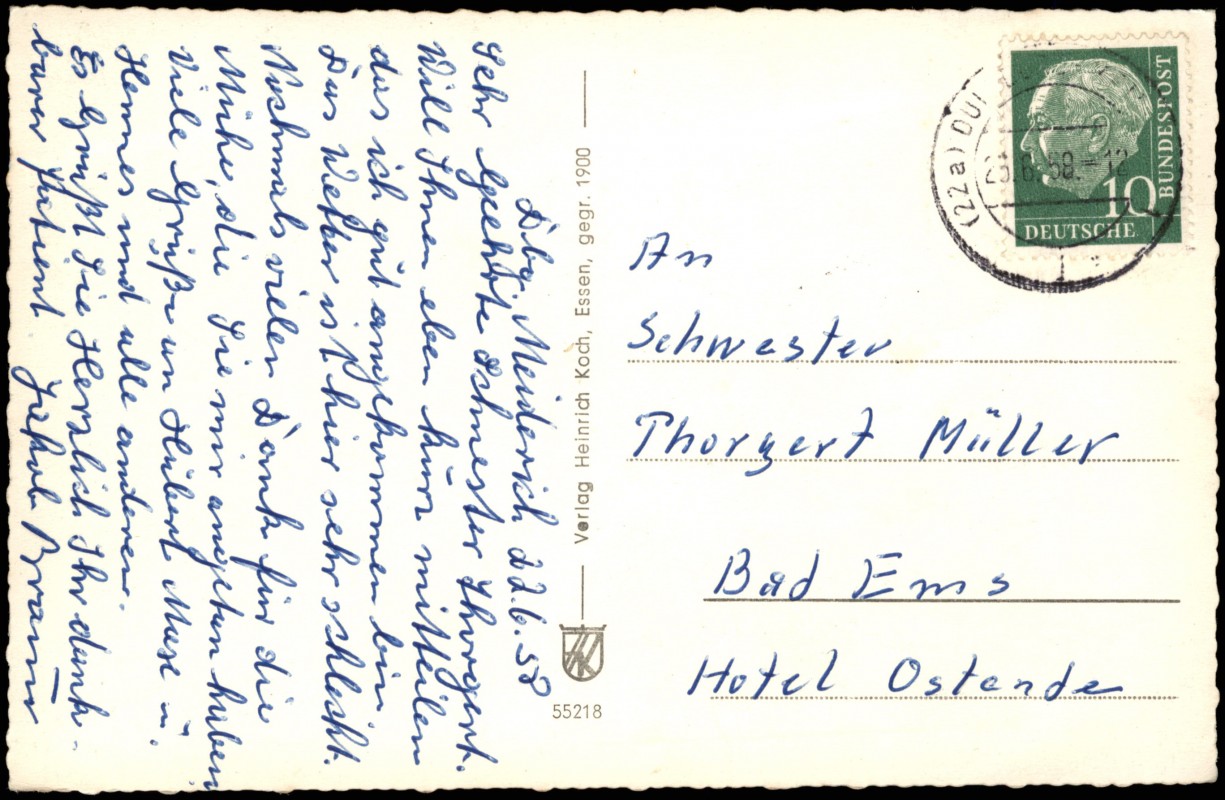 Dbg. Meiderich 22.6.58
Sehr Geehrte Schwester Thorgert.
Will Ihnen eben kurz mitteilen
das ich gut angekommen bin.
Das Wetter ist hier sehr schlecht.
Nochmals vielen Dank für die
Mühe, die Sie mir angetan haben
Viele Grüße an Hubert, Mase u.
Hennes und alle anderen.
Es Grüßt Sie Herzlich Ihr dank-
barer Patient Jakob Braun
Verlag Heinrich Koch, Essen, gegr. 1900
55218
BUNDESPOST
10
DEUTSCHE
(22a) DUI
6.58.-12
An
Schwester
Thorgert Müller
Bad Ems
Hotel Ostende